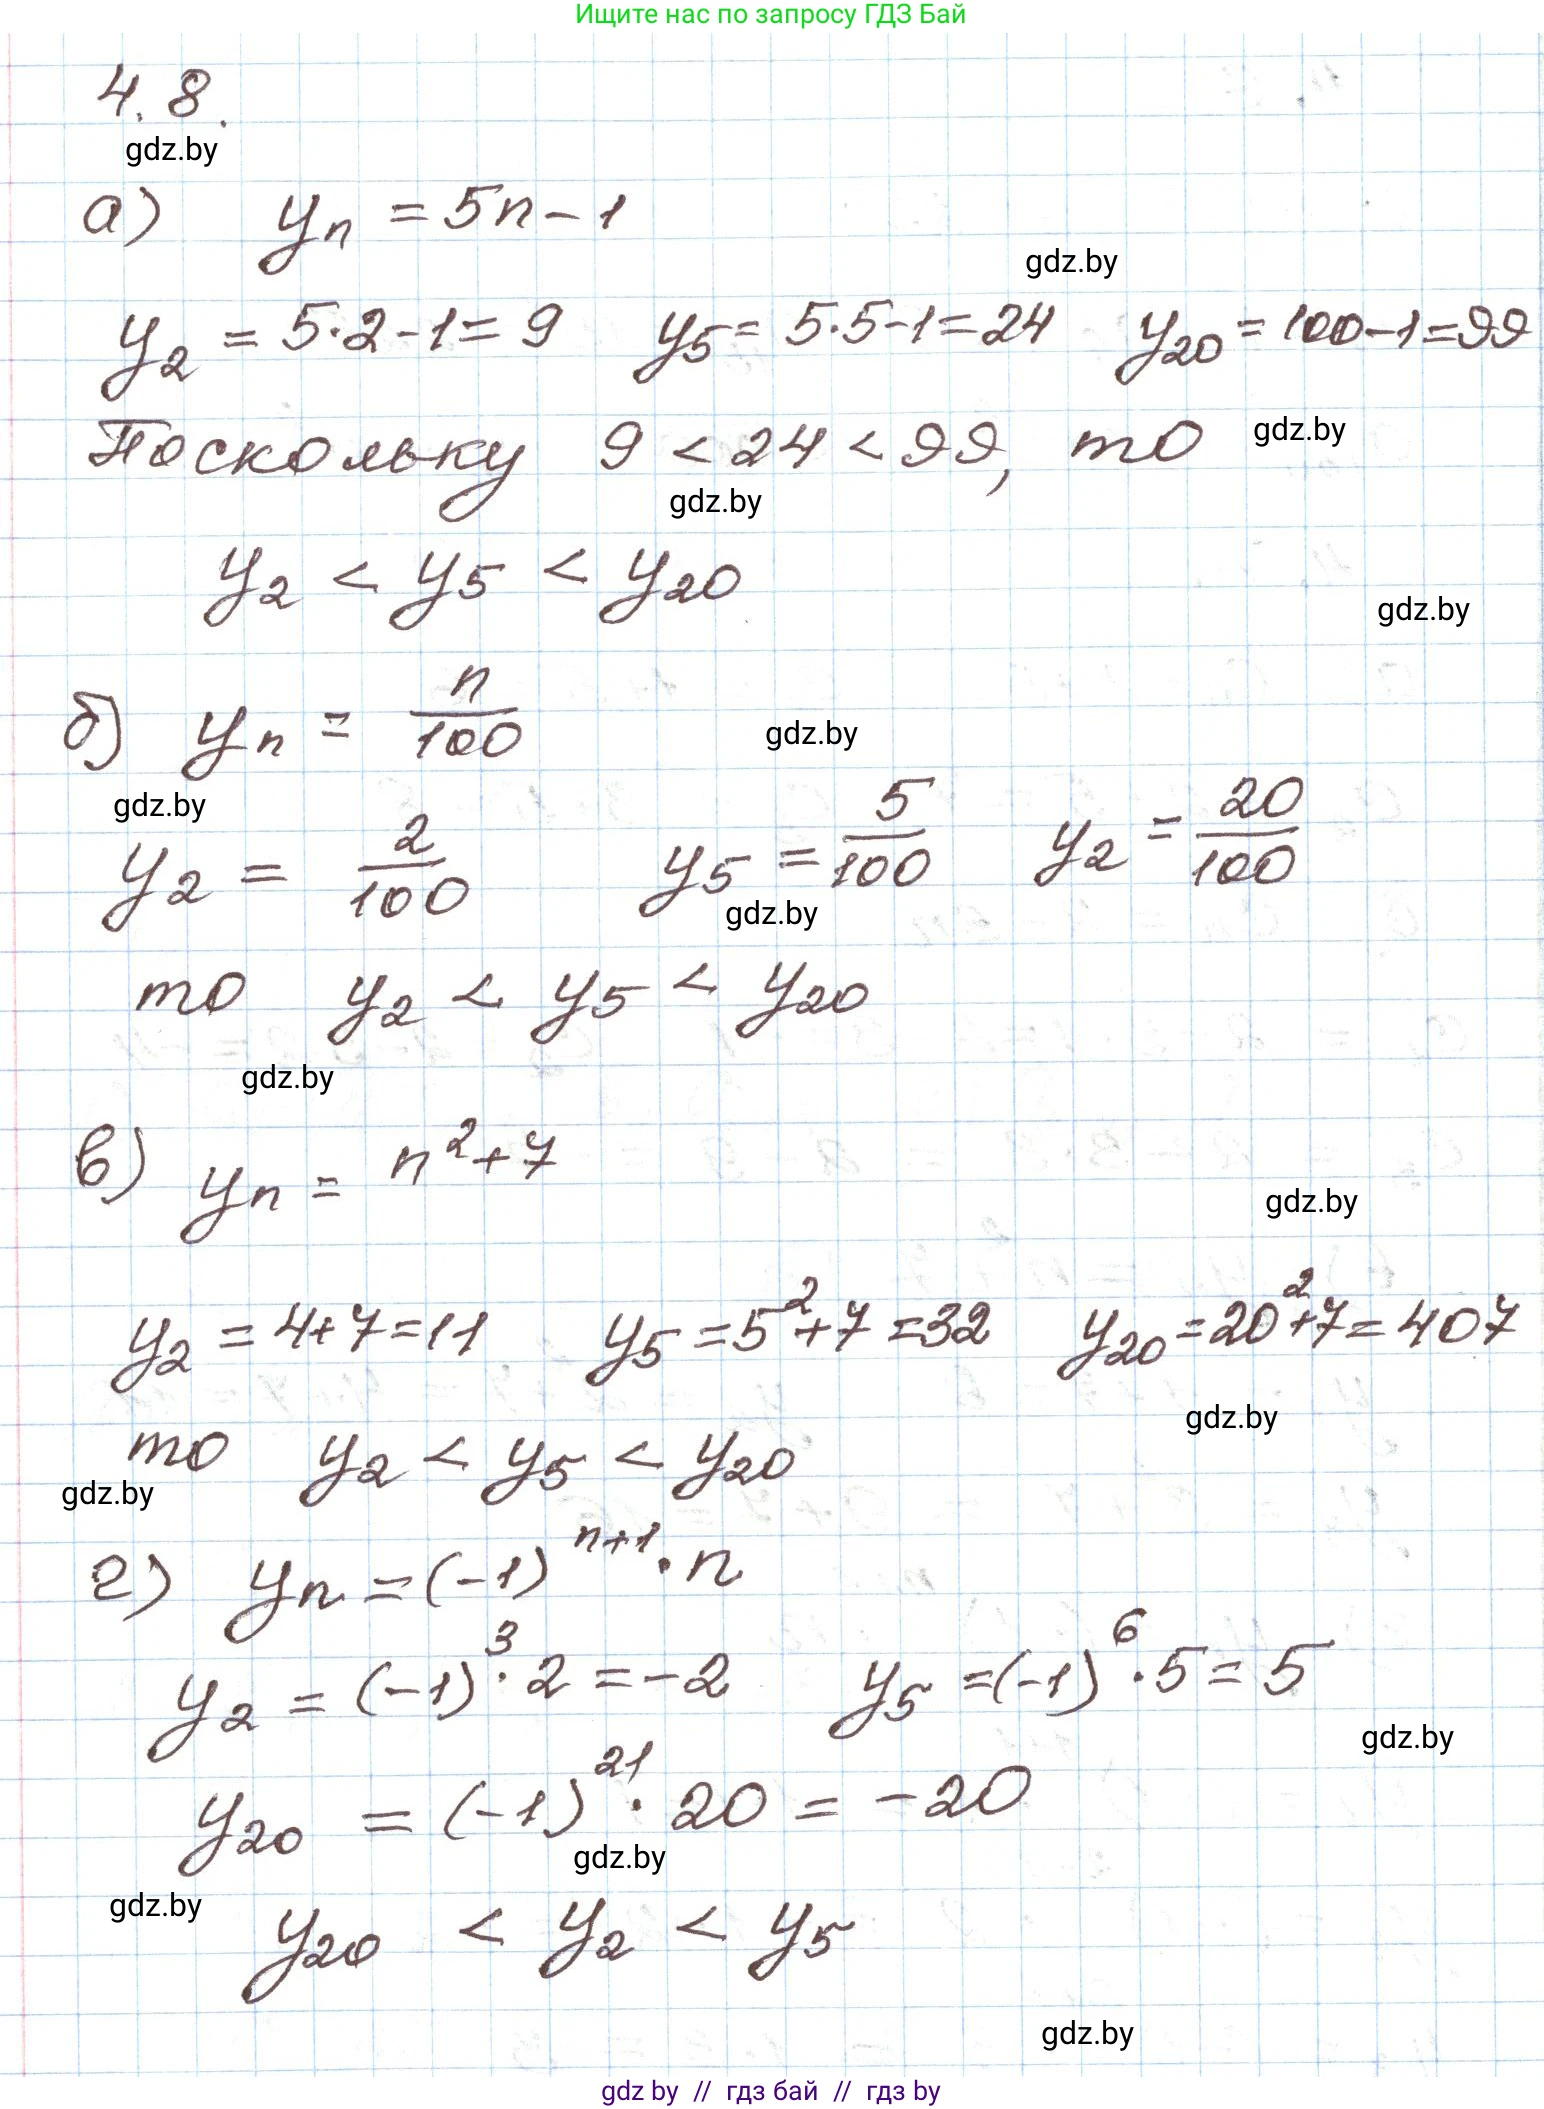 Ищите нас по запросу ГДЗ Бай
4.8.
gdz.by
а) yₙ = 5n - 1
gdz.by
y₂ = 5·2-1 = 9 y₅ = 5·5-1 = 24 y₂₀ = 100-1 = 99
Поскольку 9 < 24 < 99, то
gdz.by
gdz.by
y₂ < y₅ < y₂₀
gdz.by
б) yₙ = n/100
gdz.by
gdz.by
y₂ = 2/100 y₅ = 5/100 y₂ = 20/100
gdz.by
то y₂ < y₅ < y₂₀
gdz.by
в) yₙ = n²+7
gdz.by
y₂ = 4+7 = 11 y₅ = 5²+7 = 32 y₂₀ = 20²+7 = 407
gdz.by
то y₂ < y₅ < y₂₀
gdz.by
г) yₙ = (-1)ⁿ⁺¹·n
y₂ = (-1)³·2 = -2 y₅ = (-1)⁶·5 = 5
gdz.by
y₂₀ = (-1)²¹·20 = -20
gdz.by
gdz.by
y₂₀ < y₂ < y₅
gdz.by
gdz by // гдз бай // гдз by